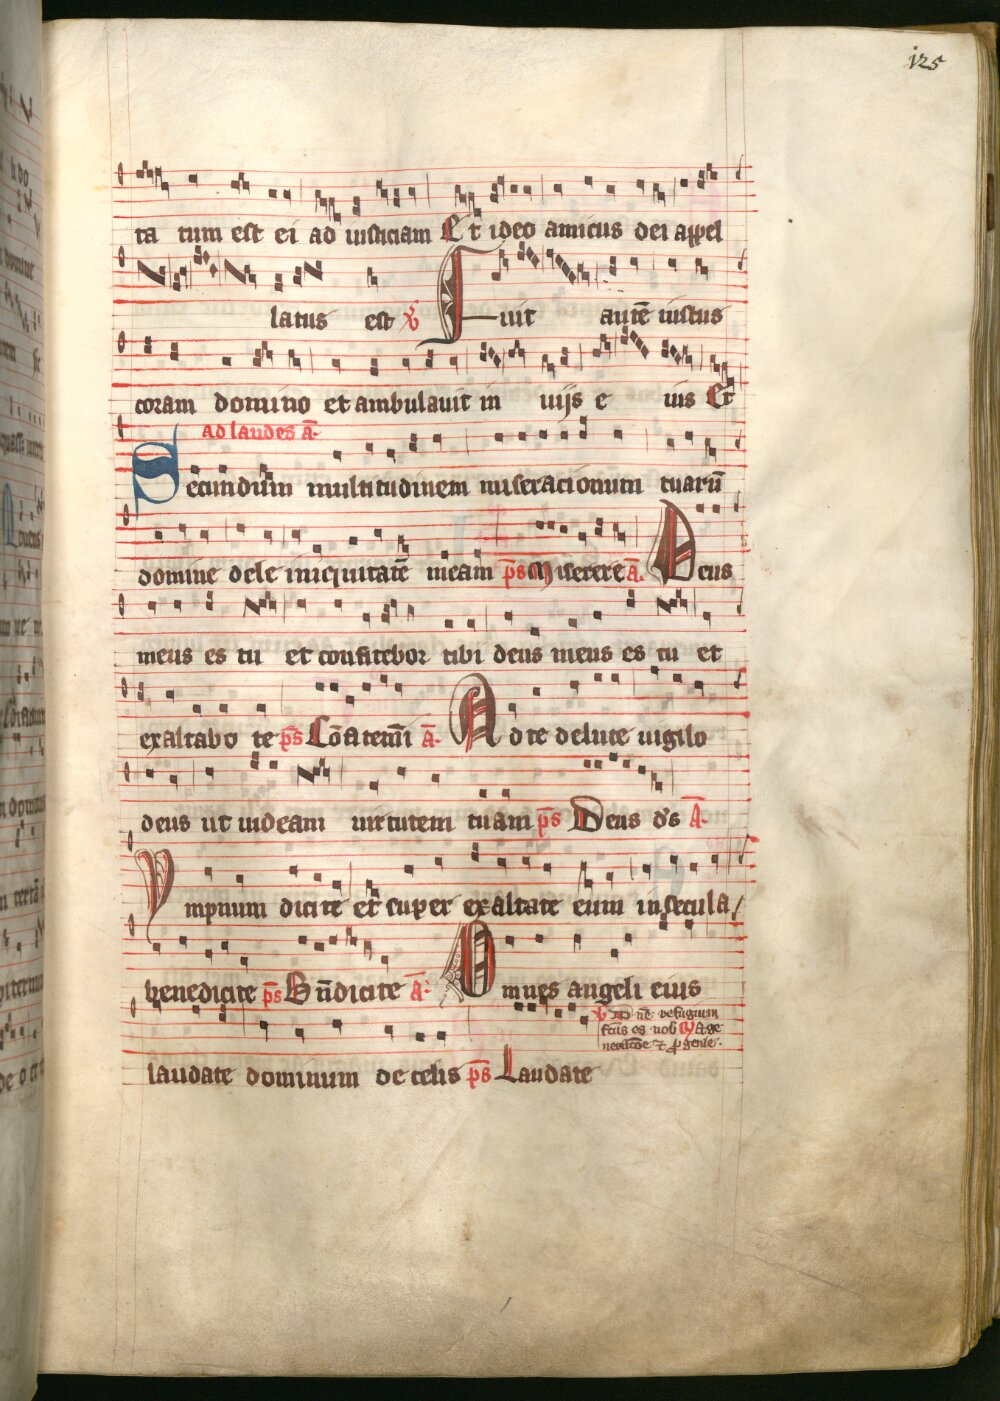 125
ta tum est ei ad iusticiam Et ideo amicus dei appel
latus est Fuit autē iustus
coram domino et ambulauit in uijs e ius Et
ad laudes a̅.
Secundum multitudinem miseracionum tuarū
domine dele iniquitatē meam p̅s Miserere a̅. Deus
meus es tu et confitebor tibi deus meus es tu et
exaltabo te p̅s Co̅fitemi̅ a̅. Ad te de luce uigilo
deus ut uideam uirtutem tuam p̅s Deus d̅s a̅.
Ympnum dicite et super exaltate eum in secula
benedicite p̅s Bn̅dicite a̅. Omnes angeli eius
Dn̅e refugium
fc̅us es nob a ge
laudate dominum de celis p̅s Laudate